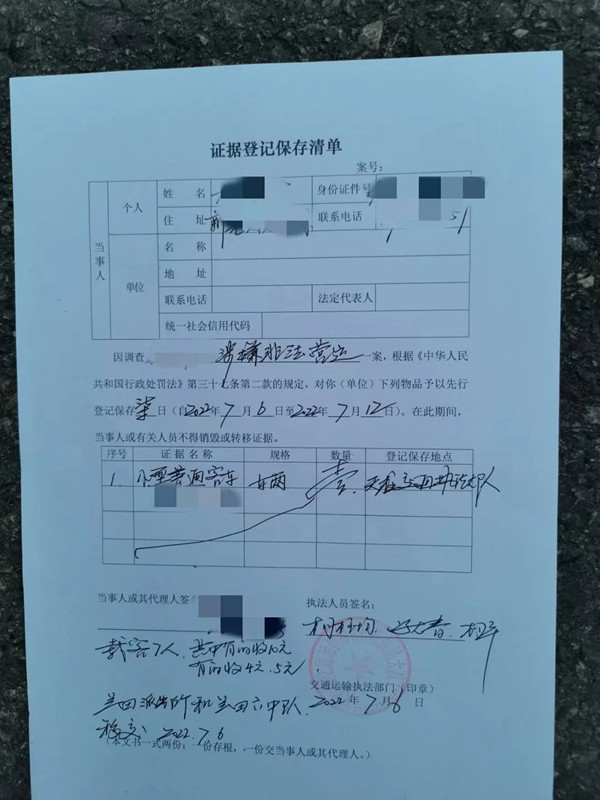 证据登记保存清单
案号:
当事人
个人
姓 名
身份证件号
住 址
联系电话
51
单位
名 称
地 址
联系电话
法定代表人
统一社会信用代码
因调查 涉嫌非法营运 一案,根据《中华人民
共和国行政处罚法》第三十七条第二款的规定,对你(单位)下列物品予以先行
登记保存柒日(自2022年7月6日至2022年7月12日)。在此期间,
当事人或有关人员不得销毁或转移证据。
序号 证据名称 规格 数量 登记保存地点
1 小型普通客车 壹 大队
当事人或其代理人签
执法人员签名:
载客7人,其中有的收10元
有的收4元.5元.
交通运输执法部门(印章)
兰田派出所和兰田六中队 2022年7月6日
移交: 2022.7.6
(本文书一式两份:一份存根,一份交当事人或其代理人。)